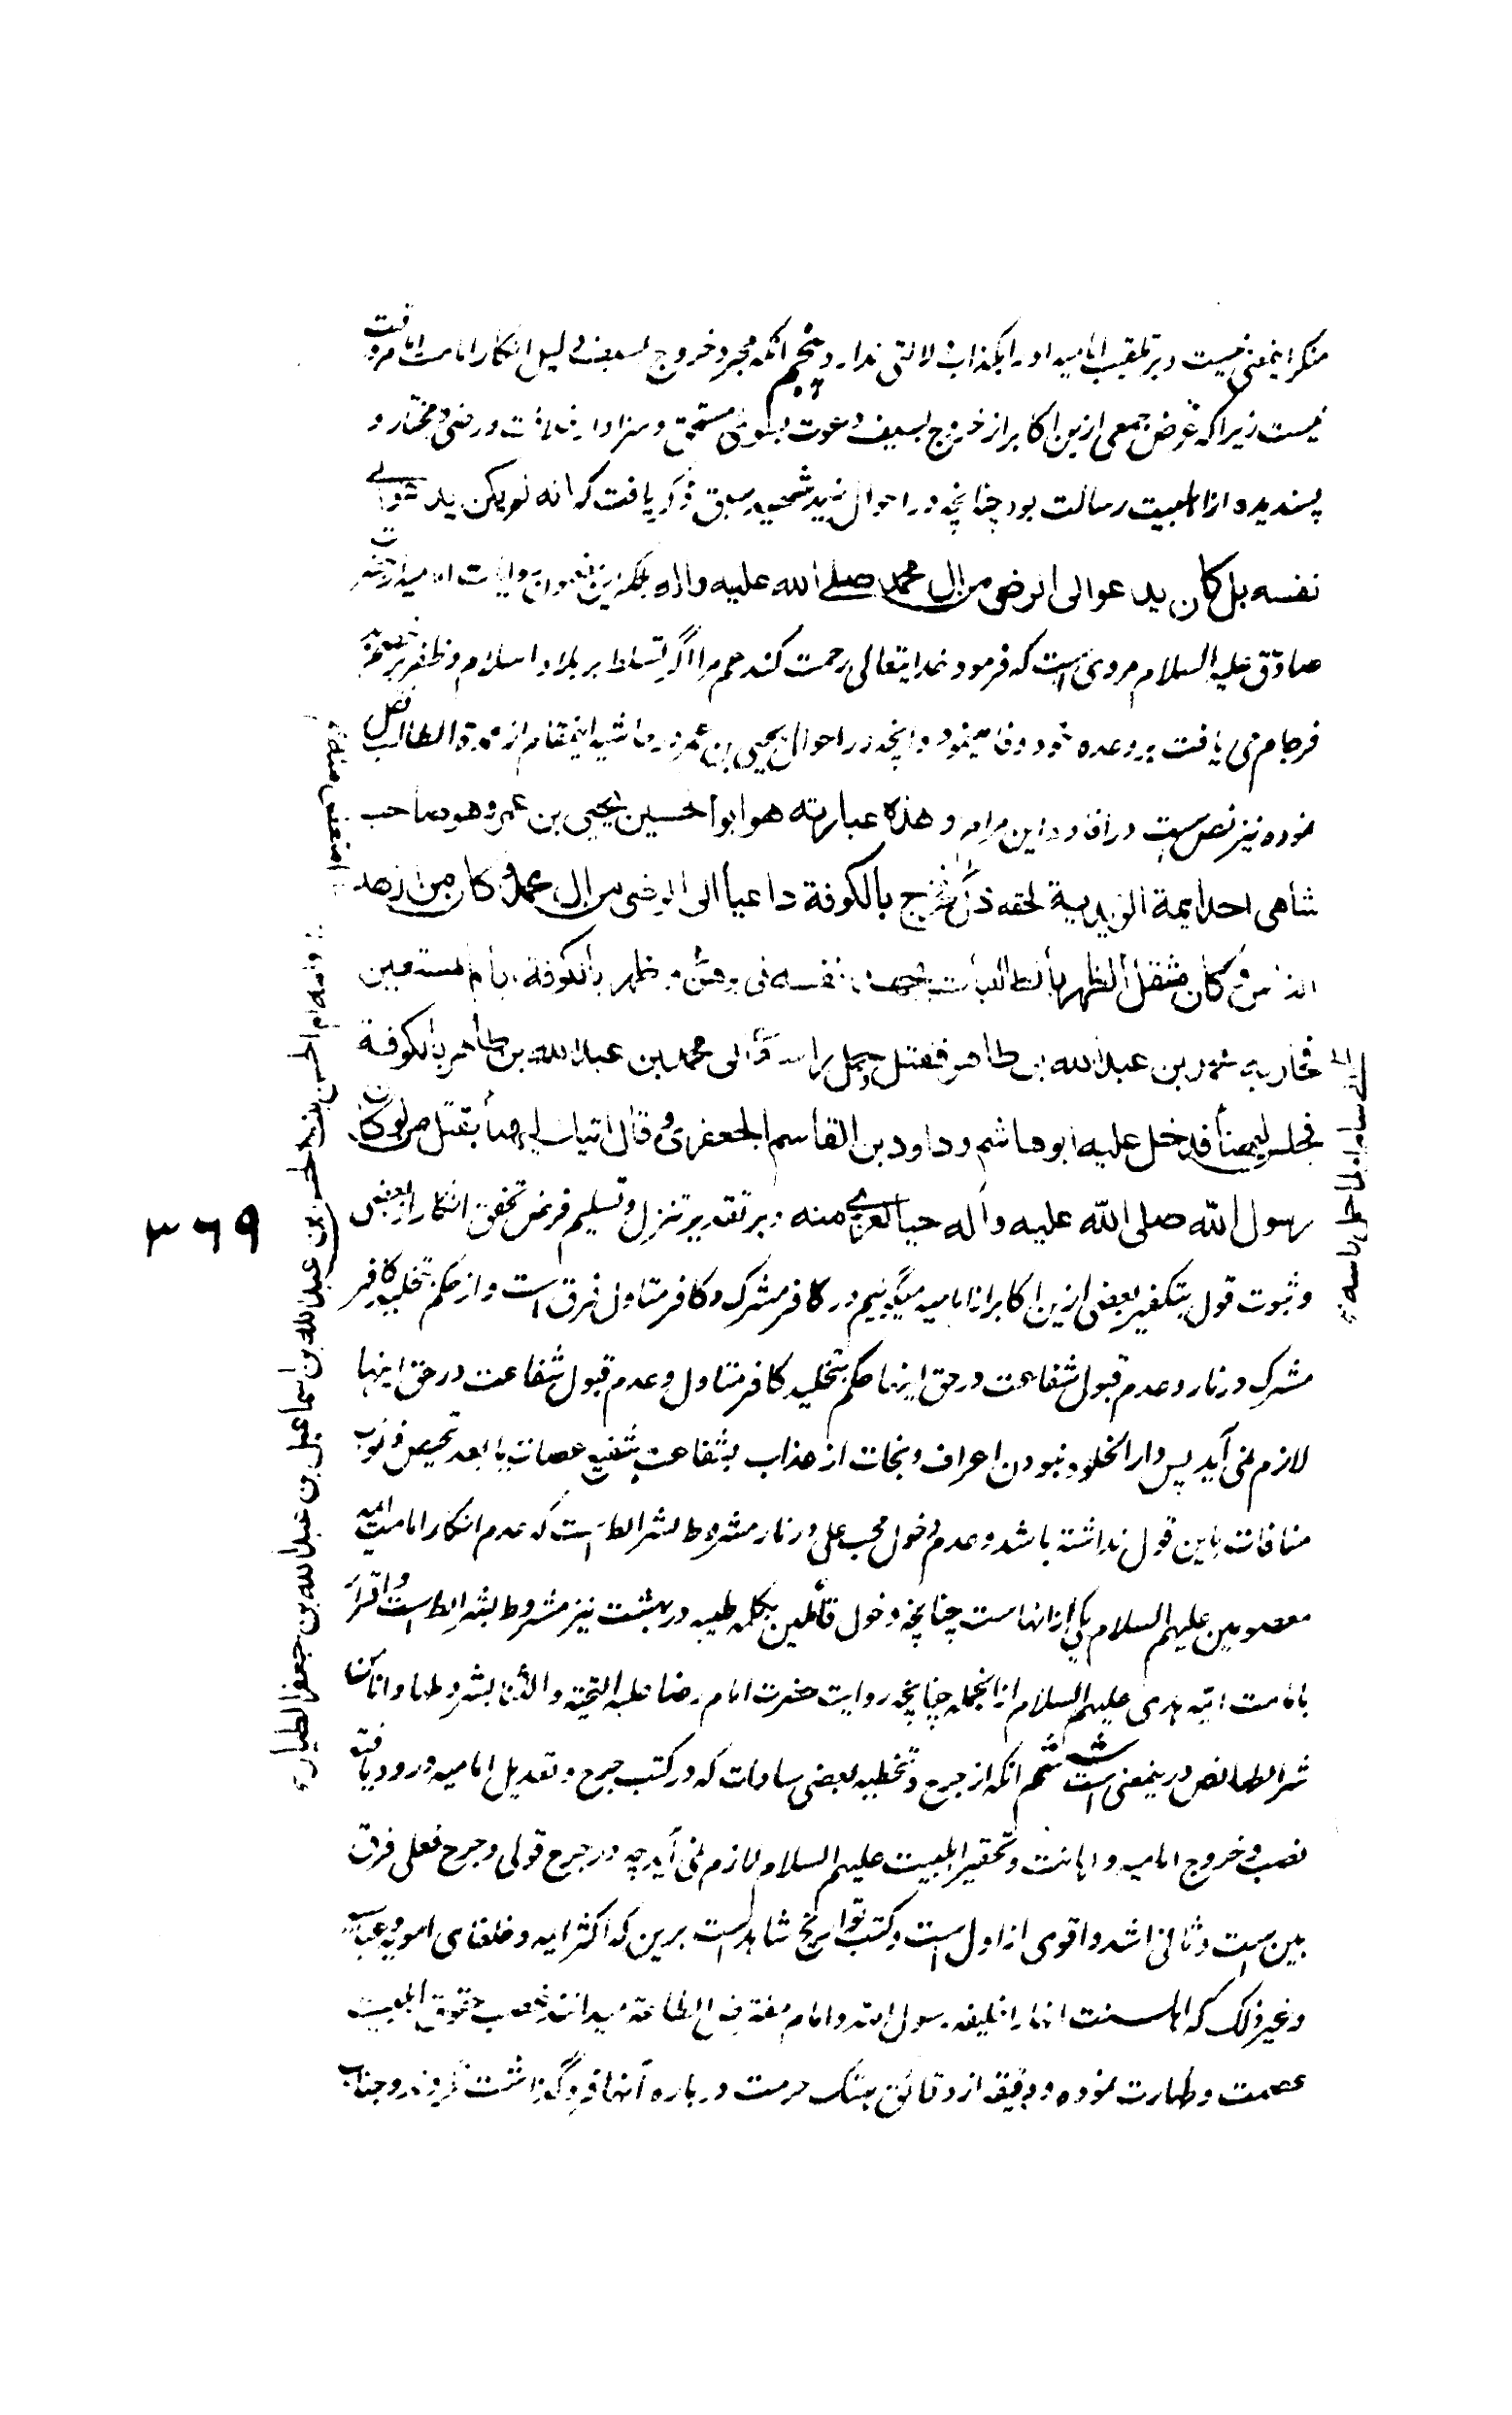 منکر اینمعنی نیست و بر تلقیب امامیه او را بکذاب دلالتی ندارد پنجم آنکه مجرد خروج بسیف دلیل انکار امامت امام وقت
نیست زیرا که غرض جمعی ازین اکابر از خروج بسیف دعوت بسوی مستحق و سزاوار خلافت و رضی و مختار و
پسندیده از اهلبیت رسالت بود چنانچه در احوال زید شهید سبق ذکر یافت که انه لم یکن یدعو الی
نفسه بل کان یدعو الی الرضی من ال محمد صلی الله علیه واله بلکه روایات امامیه از حضرت
صادق علیه السلام مروی است که فرمود خدایتعالی رحمت کند عم مرا اگر تسلط بر بلاد اسلام و ظفر بر
فرجام می یافت بر وعده خود وفا مینمود و آنچه در احوال یحیی بن عمر در حاشیه اینمقام از عمدة الطالب نقل
نموده نیز نص است در افاده این مرام و هذه عبارته هو ابوالحسین یحیی بن عمر و هو صاحب
شاهی احد ایمة الزیدیة لحقه ذل فخرج بالکوفة داعیاً الی الرضی من ال محمد و کان من ازهد
الناس و کان مثقل الظهر بالطالبیات نفسه فی و ظهر بالکوفة
فحاربه محمد بن عبدالله بن طاهر فقتل و حمل راسه الی محمد بن عبدالله بن طاهر بالکوفة
فجلس لیهنأ فدخل علیه ابوهاشم داود بن القاسم الجعفری و قال اتیناک مهنأ بقتل من لو کان
رسول الله صلی الله علیه و اله حیا لعزی منه و بر تقدیر تنزل و تسلیم فرض تحقق انکار از بعض
و ثبوت قول بتکفیر بعضی ازین اکابر از امامیه میگوئیم در کافر مشرک و کافر متاول فرق است و از حکم بتخلید کافر
مشرک در نار و عدم قبول شفاعت در حق اینها حکم بتخلید کافر متاول و عدم قبول شفاعت در حق اینها
لازم نمی آید پس دار الخلود نبودن اعراف و نجات از عذاب بشفاعت شفیع عصات یا بعد تمحیص ذنوب
منافات باین قول نداشته باشد و عدم دخول محب علی در نار مشروط بشرائط است که عدم انکار امامت ائمه
معصومین علیهم السلام یکی از انهاست چنانچه دخول قائلین بکلمه طیبه در بهشت نیز مشروط بشرائط است و اقرار
بامامت ائمه هدی علیهم السلام از انجمله چنانچه روایت حضرت امام رضا علیه التحیة والثنا بشروطها و انا من
شرائطها نص درینمعنی است ششم آنکه از جرح و تخطیه بعضی سادات که در کتب جرح و تعدیل امامیه ورود یافته
نصب و خروج امامیه و اهانت و تحقیر اهلبیت علیهم السلام لازم نمی آید چه در جرح قولی و جرح فعلی فرق
بین است و ثانی اشد و اقوی از اول است و کتب تواریخ شاهد است برین که اکثر ایمه و خلفای امویه و عباسیه
و غیر ذلک که اهلسنت انها را خلیفه رسول الله و امام مفترض الطاعه میدانند غصب حقوق اهلبیت
عصمت و طهارت نموده و دقیقه از دقائق هتک حرمت درباره آنها فروگذاشت نکردند و جناب
۳۶۹
و امه ام الحسن بنت الحسین بن عبدالله بن اسماعیل بن عبدالله بن جعفر الطیار